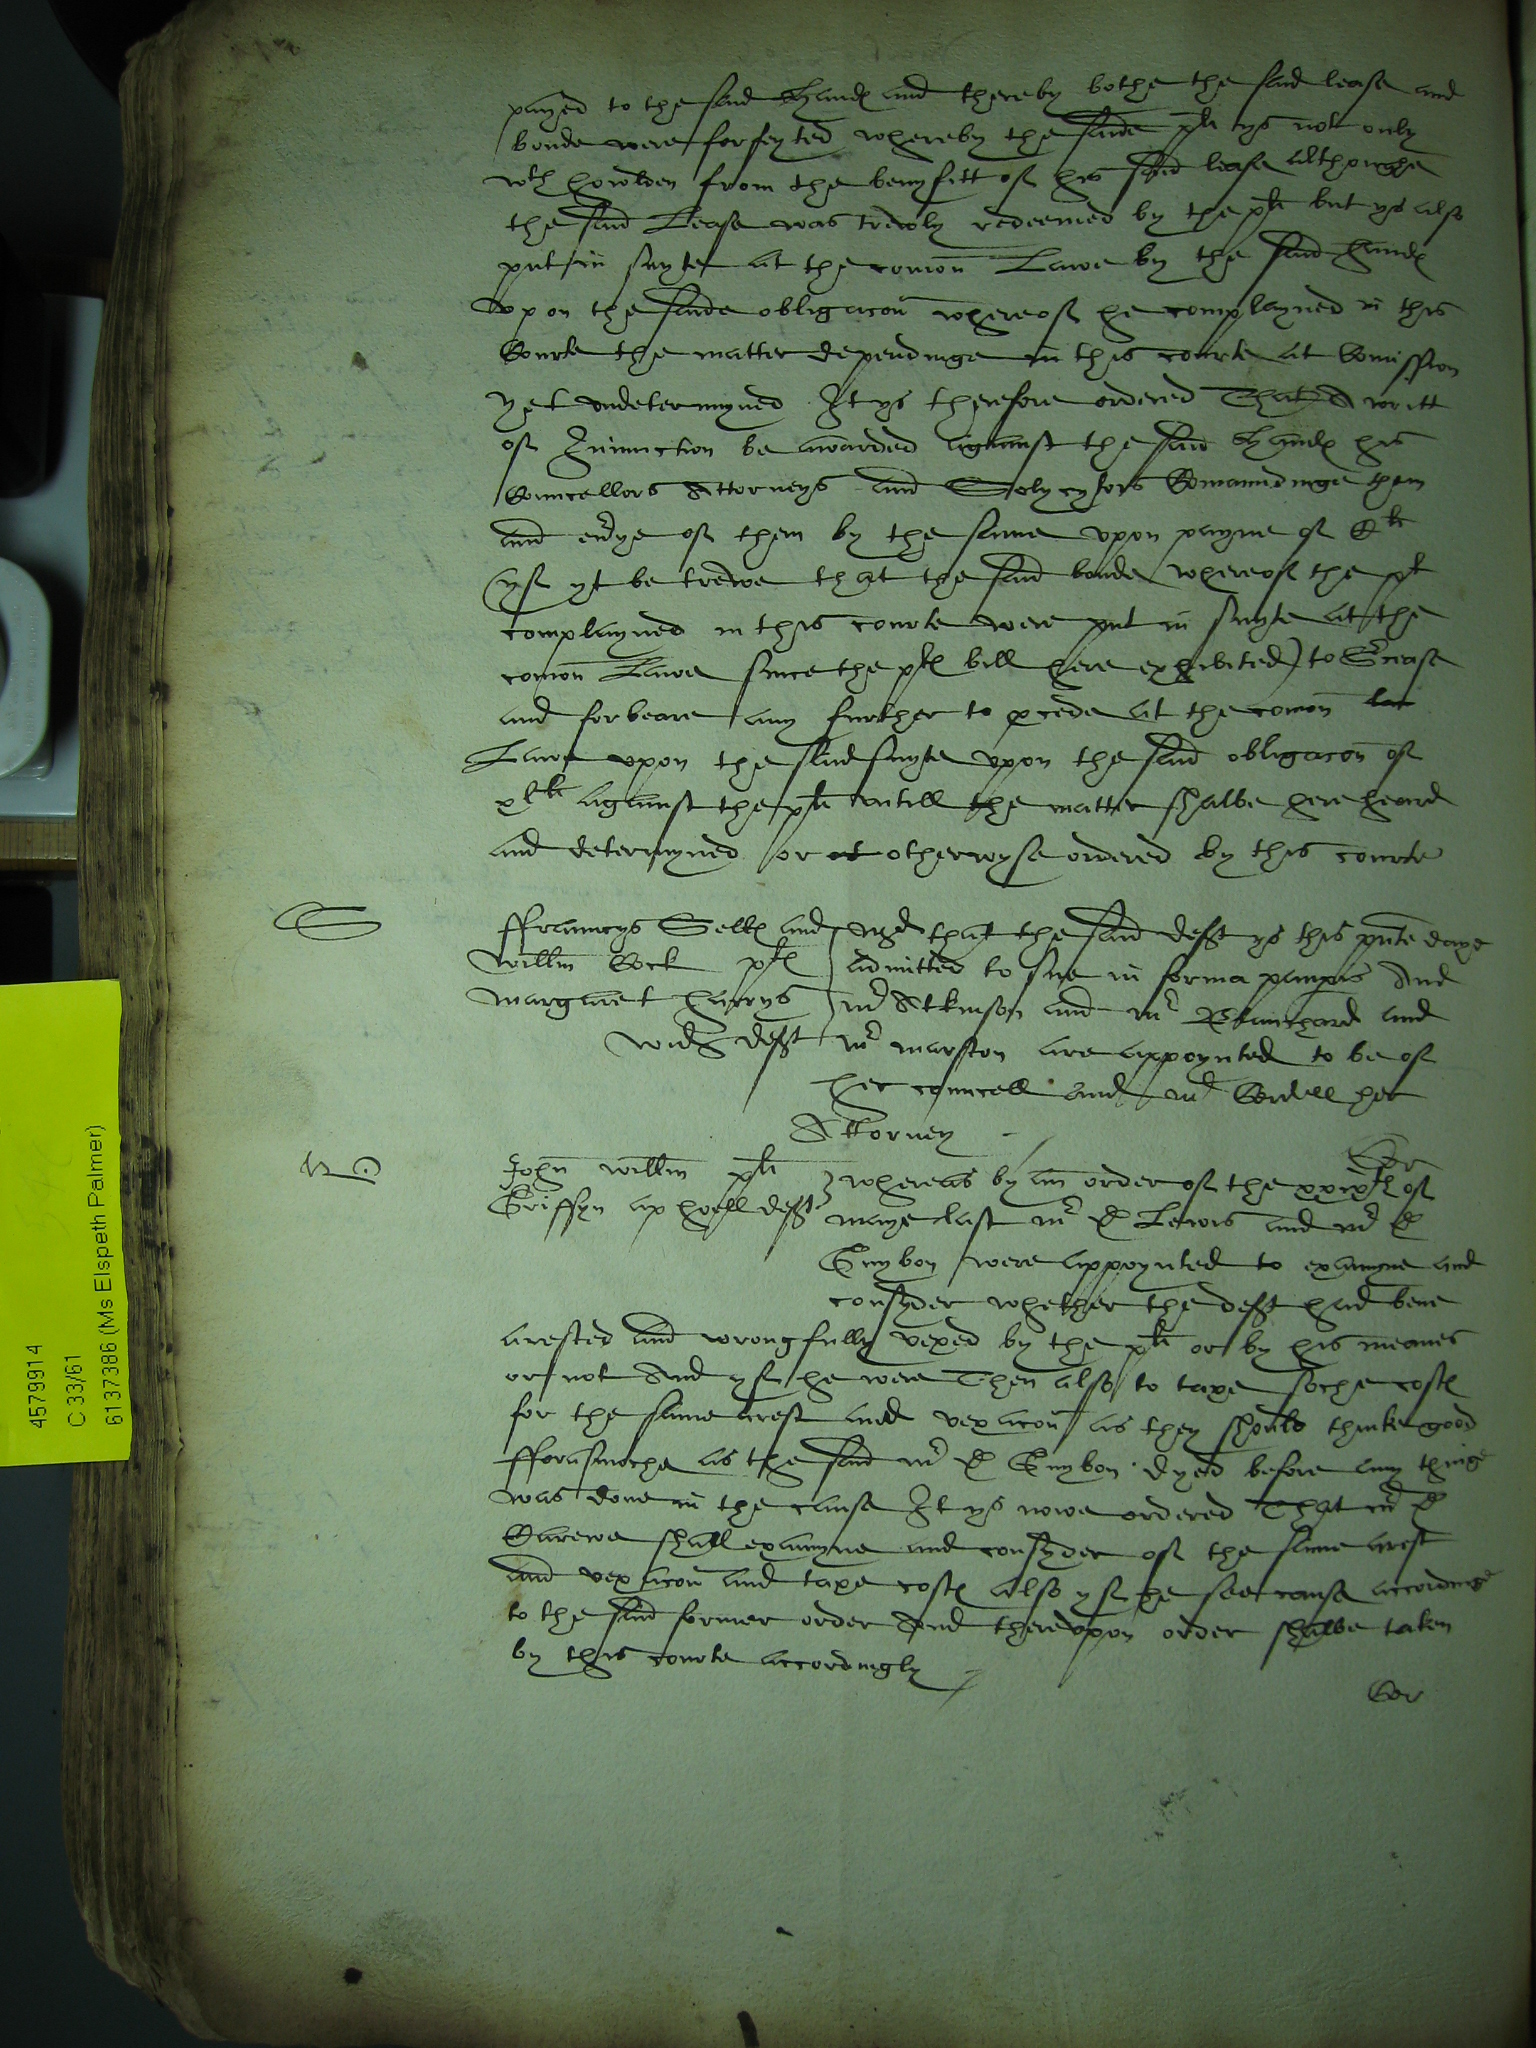 payed to the said Hands and thereby bothe the said lease and
bonde were forfeyted whereby the saide plt ys not only
wth howlden from the benyfitt of his said lease althoughe
the said Lease was trewly redeemed by the plt but ys also
put in suyte at the comon Lawe by the said Hands
vpon the saide obligacon whereof he complayned in this
Courte the matter dependinge in this courte at Comission
yet vndetermyned It ys therefore ordered That A writt
of Iniunction be awarded against the said Hands his
Councellors Attorneys and Solycytors Comaundinge them
and eu'ye of them by the same vpon payne of Cli
(yf yt be trewe that the said bonde whereof the plt
complayned in this courte were put in suyte at the
comon Lawe since the plts bill here exhibited) to Surcease
and forbeare any further to pcede at the comon law
Lawe vpon the said suyte vpon the said obligacon of
xlli against the plt vntill the matter shalbe here heard
and determyned or ot otherwyse ordered by this courte
S
ffrauncys Sells and
Willm Cock plts
Margaret Harrys
wid deft
that the said deft ys this pnte daye
admitted to sue in forma paupis And
mr Atkinson and mr Blanchard and
mr Marston are appoynted to be of
her councell and mr Cordell her
Attorney
Cor
John Willm plt
Griffyn ap Howell deft
Whereas by an order of the xxixth of
maye last mr D Lewis and mr D
Guybon were appoynted to examyne and
consyder whether the deft had bene
arested and wrongfully vexed by the plt or by his meanes
or not And yf he were Then also to taxe soche costs
for the same arest and vexacon as they should thinke good
fforasmoche as the said mr D Guybon dyed before any thinge
was done in the cause It ys nowe ordered That mr D
Carewe shall examyne and consyder of the same arest
and vexacon and taxe costs also yf he see cause accordinge
to the said former order And therevpon order shalbe taken
by this courte accordingly
Cor
4579914
C 33/61
6137386 (Ms Elspeth Palmer)